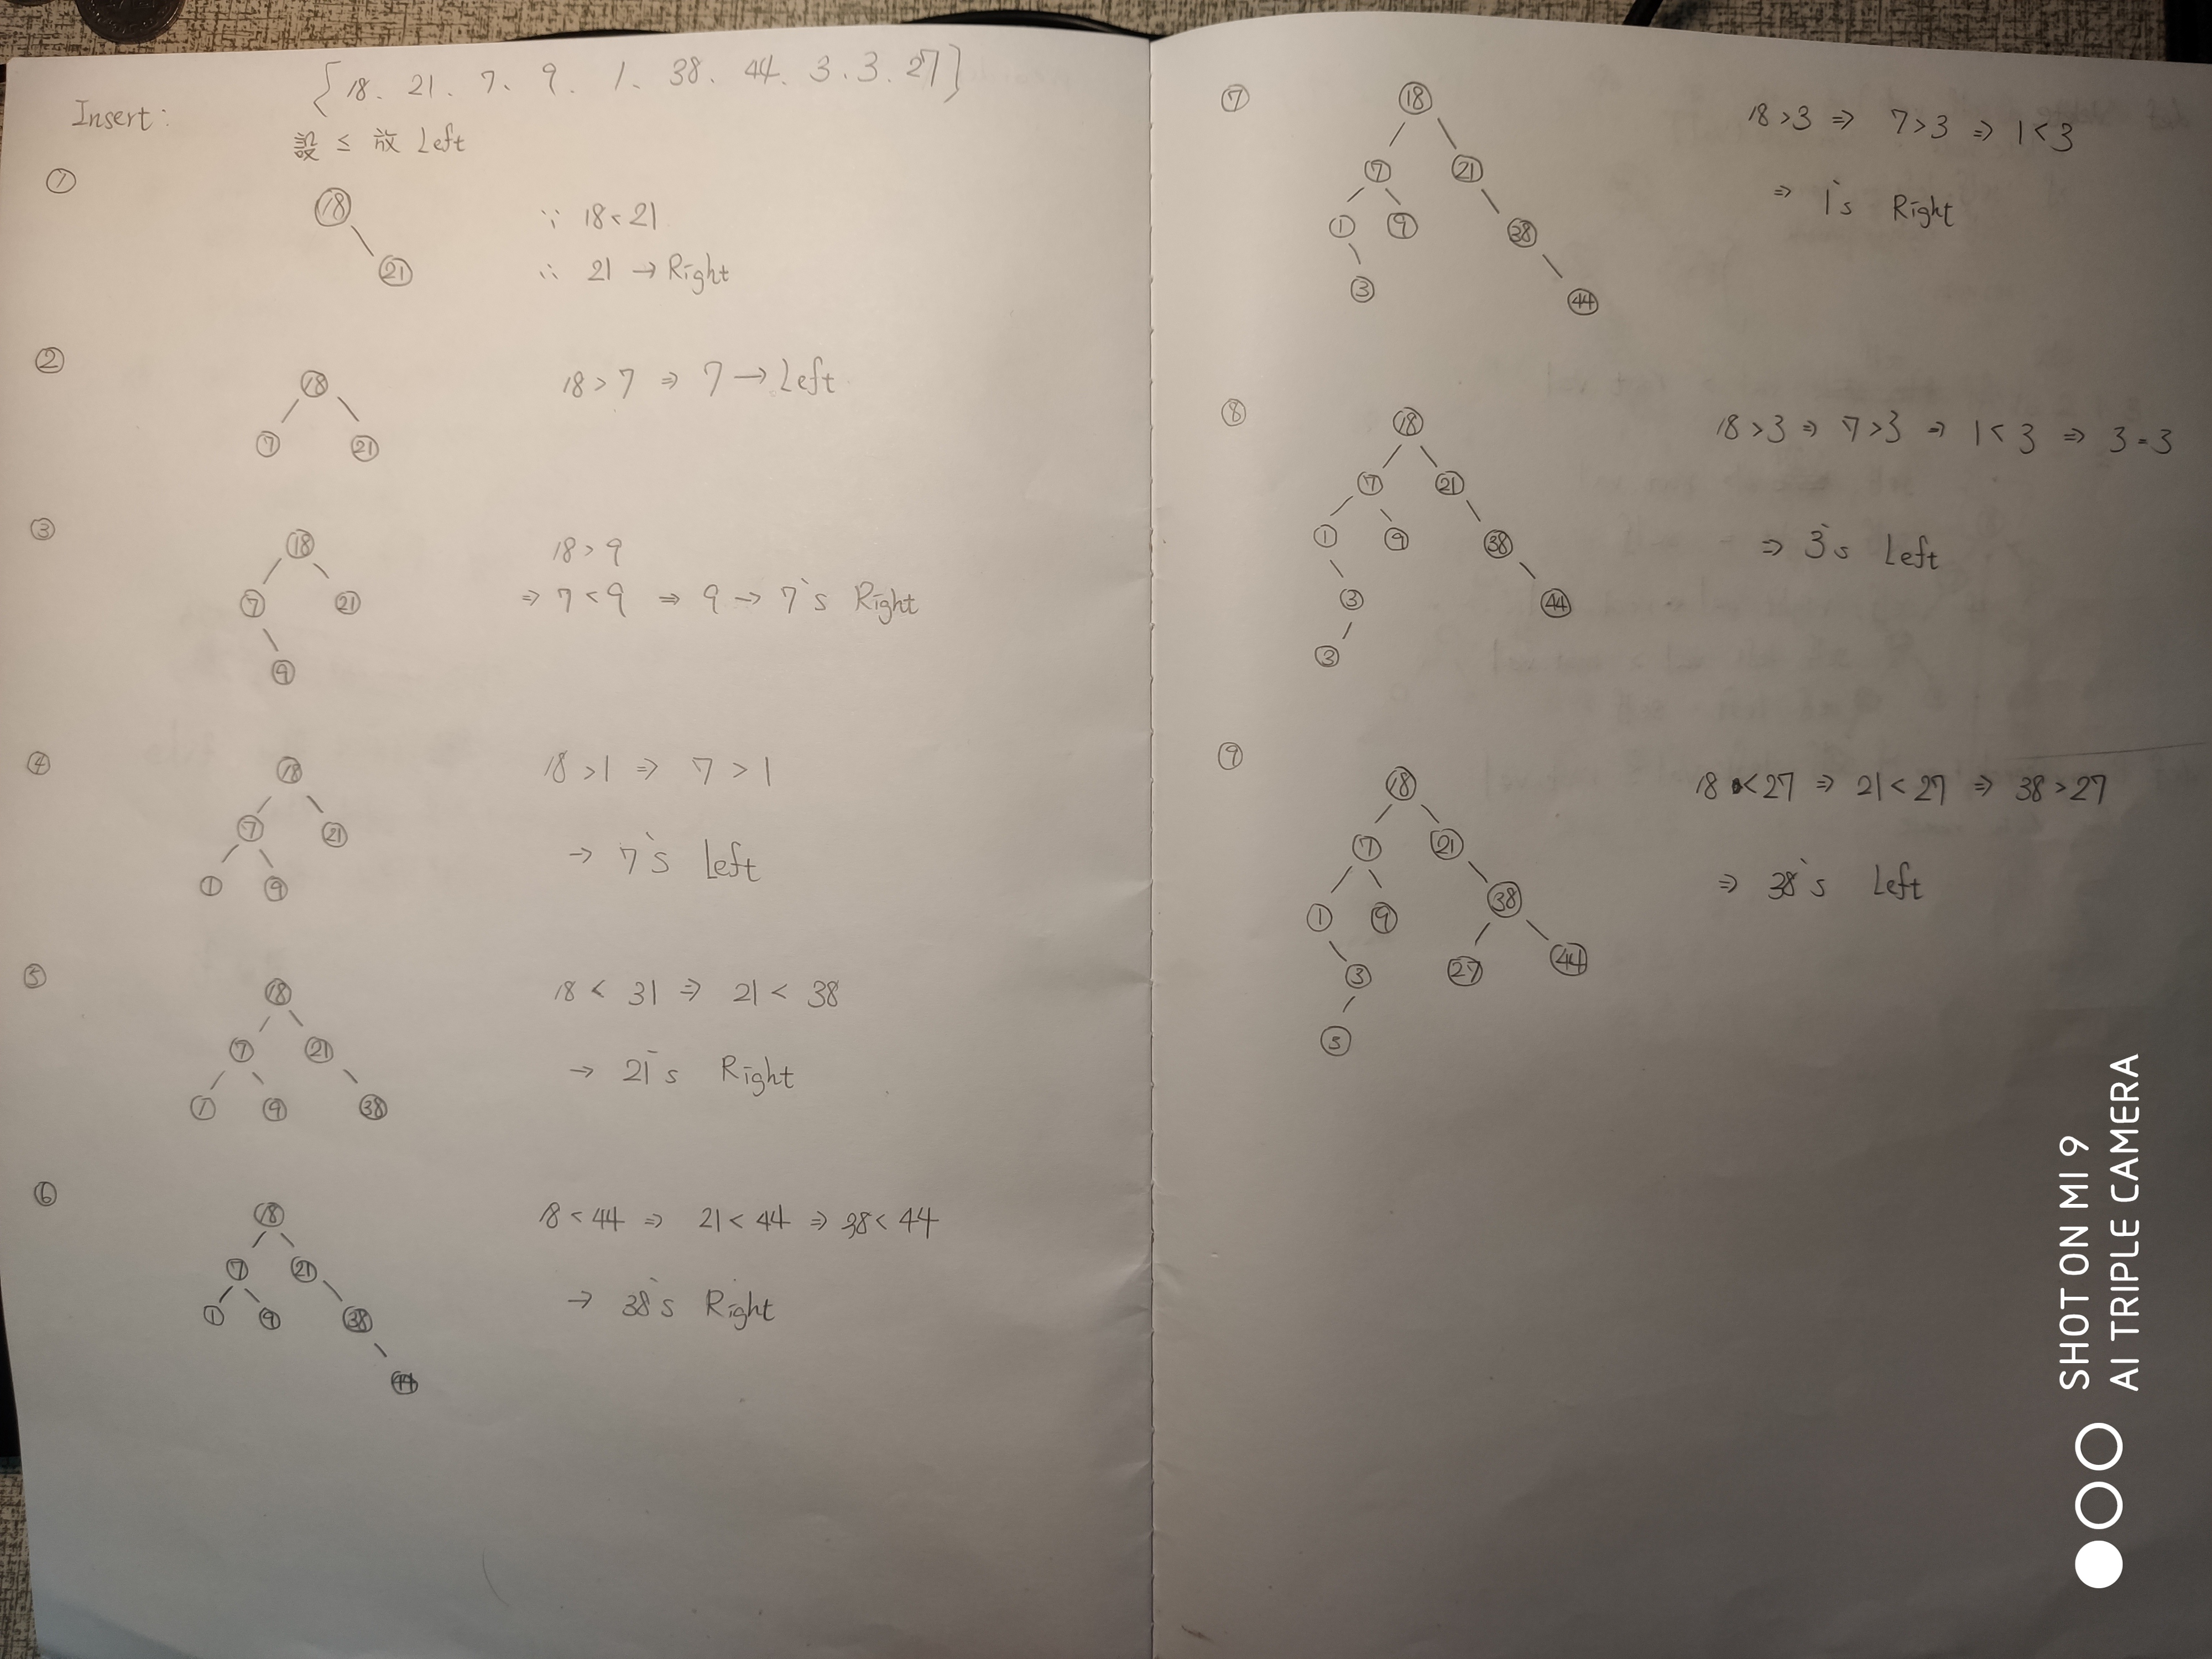 {18、21、7、9、1、38、44、3、3、27}
Insert:
設 ≤ 放 Left
①
18
21
∵ 18<21
∴ 21 → Right
②
18
7 21
18>7 ⇒ 7 → Left
③
18
7 21
9
18>9
⇒ 7<9 ⇒ 9 → 7's Right
④
18
7 21
1 9
18>1 ⇒ 7>1
→ 7's Left
⑤
18
7 21
1 9 38
18<31 ⇒ 21<38
→ 21's Right
⑥
18
7 21
1 9 38
44
18<44 ⇒ 21<44 ⇒ 38<44
→ 38's Right
⑦
18
7 21
1 9 38
3 44
18>3 ⇒ 7>3 ⇒ 1<3
⇒ 1's Right
⑧
18
7 21
1 9 38
3 44
3
18>3 ⇒ 7>3 ⇒ 1<3 ⇒ 3=3
⇒ 3's Left
⑨
18
7 21
1 9 38
3 27 44
18<27 ⇒ 21<27 ⇒ 38>27
⇒ 38's Left
SHOT ON MI 9
AI TRIPLE CAMERA